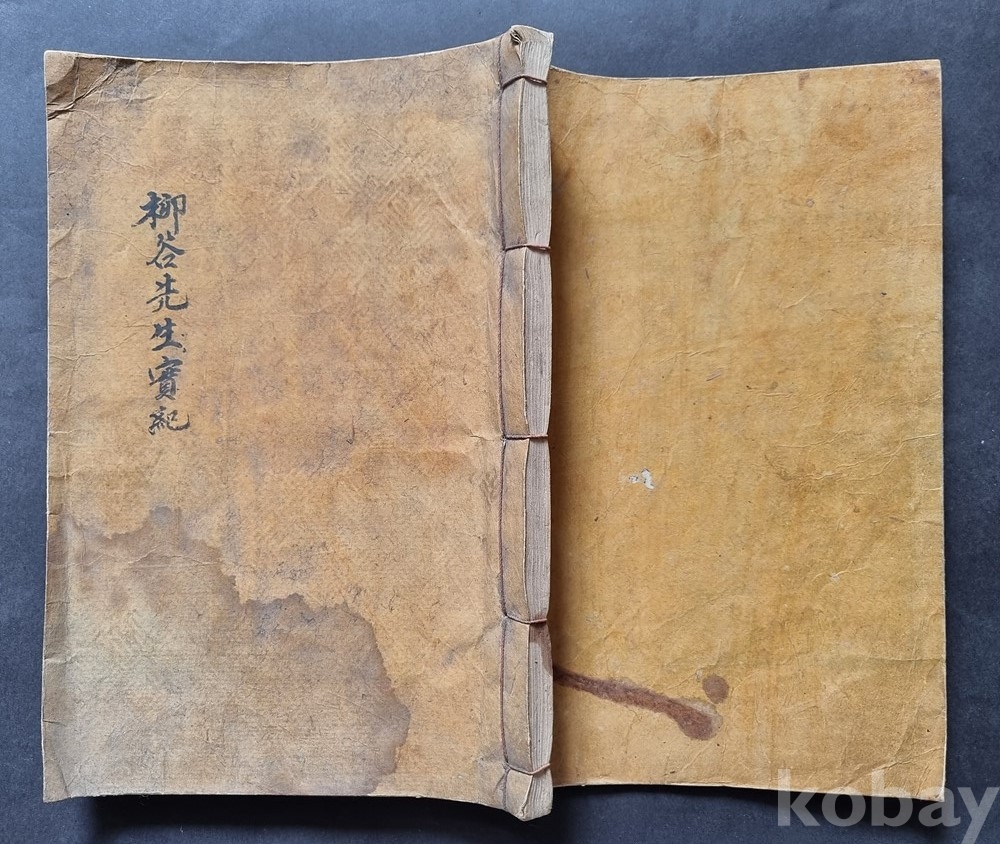 柳谷先生實紀
kobay